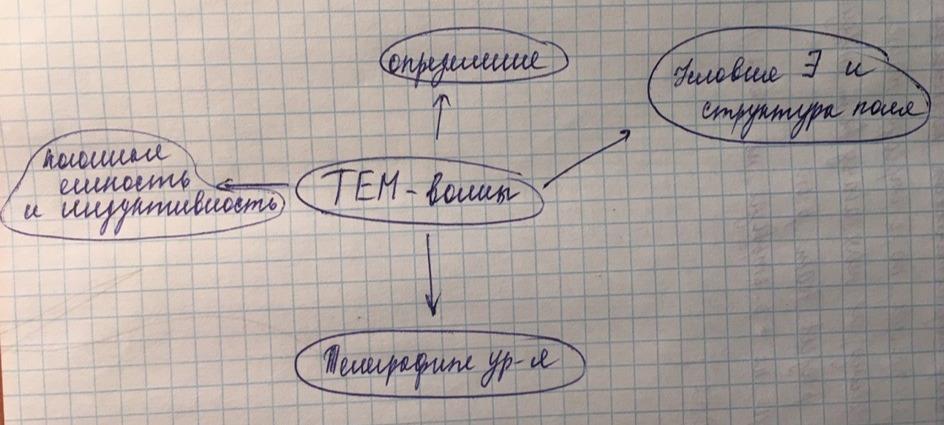 определение
Условие ∃ и
структура поля
погонная
емкость
и индуктивность
ТЕМ-волны
Телеграфные ур-я